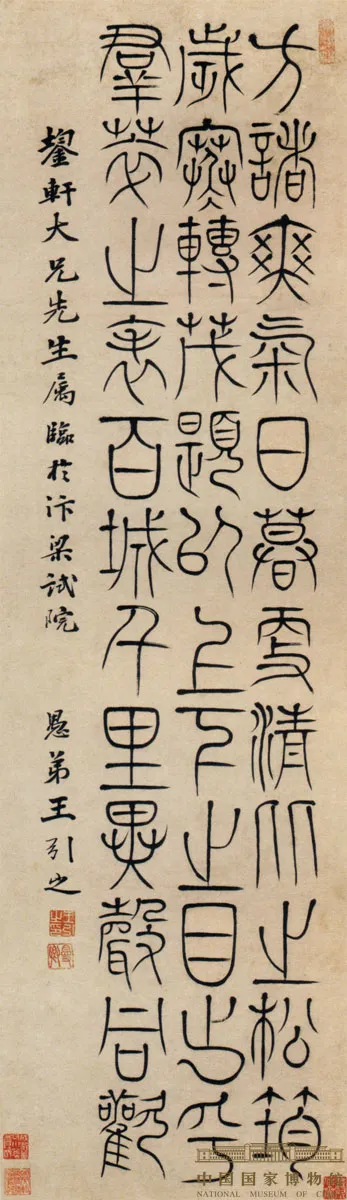 方諸爽氣日暮更清比之松筠
歲寒轉茂題以上下之目出乎
羣英之表百城千里異聲同歡
軒大兄先生属臨於汴梁試院 愚弟王引之
中国国家博物馆
NATIONAL MUSEUM OF C